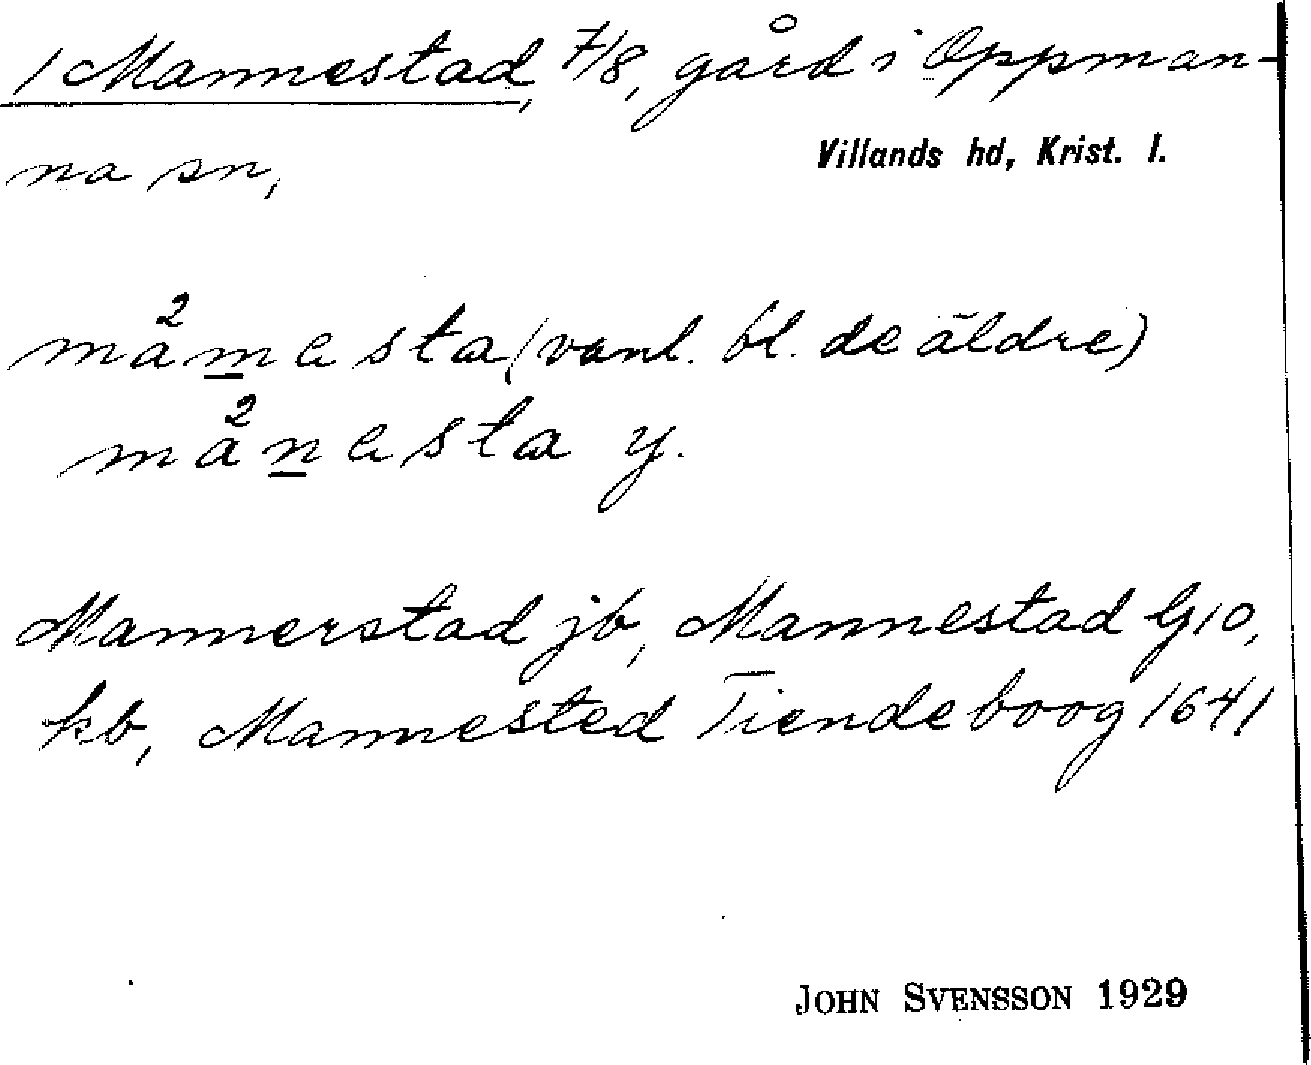 1 Mannestad, 7/8, gård i Oppman-
na sn,
Villands hd, Krist. l.
må²mesta (vanl. bl. de äldre)
må²nesta y.
Mannerstad jb, Mannestad G10,
kb, Mannested Tiendeboog 1641
JOHN SVENSSON 1929